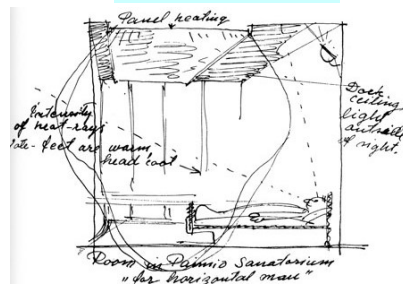 Panel heating
Intensity
of heat-rays
ote- feet are warm
head cool
ceiling
light
outside
Room in Paimio Sanatorium
„for horizontal man"